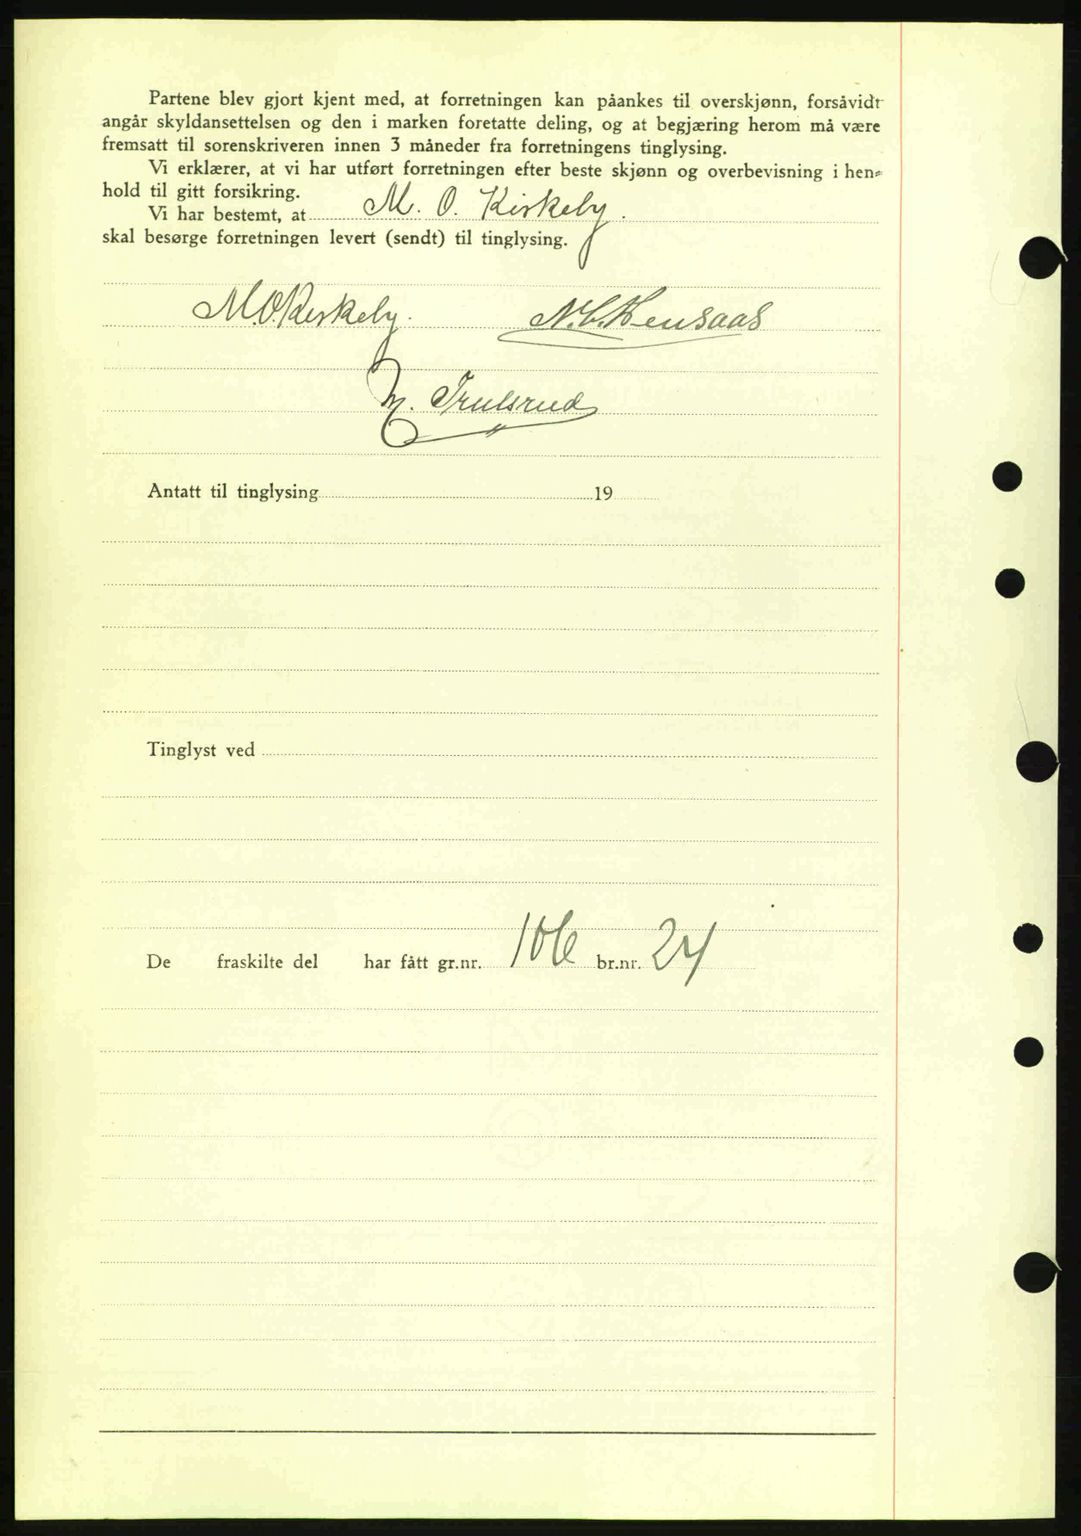 Partene blev gjort kjent med, at forretningen kan påankes til overskjønn, forsåvidt
angår skyldansettelsen og den i marken foretatte deling, og at begjæring herom må være
fremsatt til sorenskriveren innen 3 måneder fra forretningens tinglysing.
Vi erklærer, at vi har utført forretningen efter beste skjønn og overbevisning i hen=
hold til gitt forsikring.
Vi har bestemt, at M. O. Kirkeby.
skal besørge forretningen levert (sendt) til tinglysing.
M.O. Kirkeby. N. C. Hensaas
M. Trulsrud
Antatt til tinglysing 19
Tinglyst ved
De fraskilte del har fått gr.nr. 106 br.nr. 24